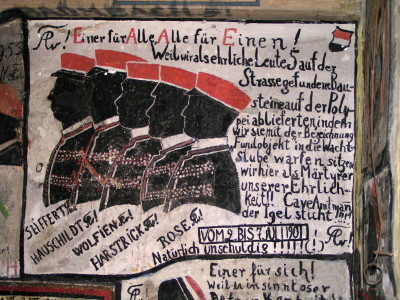 ! Einer für Alle Alle für Einen!
Weil wir als ehrliche Leute auf der
Strasse gefundene Bau-
steine auf der Poly-
pei ablieferten indem
wir sie mit der Bezeichnung
Fundobjekt in die Wacht-
stube warfen sitzen
wir hier als Märtyrer
unserer Ehrlich-
keit! Cave Amtman
der Igel sticht Ihn!
SEIFFERT
HAUSCHILDT
WOLFIEN
HARSTRICK
ROSE
VOM 2 BIS 7. VII 1901
Natürlich unschuldig!!!!!(!)
Einer für sich!
Weil er in sinnloser